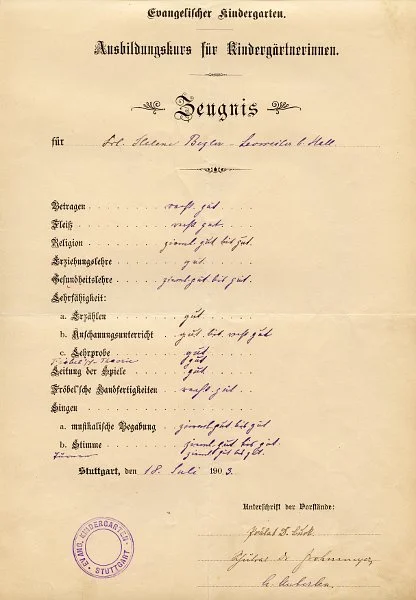 Evangelischer Kindergarten.
Ausbildungskurs für Kindergärtnerinnen.
Zeugnis
für Frl. Helene Bezler - b. Hall.
Betragen recht gut
Fleiß recht gut
Religion ziemL. gut bis gut.
Erziehungslehre gut
Gesundheitslehre ziemL. gut bis gut.
Lehrfähigkeit:
a. Erzählen gut
b. Anschauungsunterricht gut bis recht gut
c. Lehrprobe gut
gut
Leitung der Spiele gut
Fröbel'sche Handfertigkeiten recht gut
Singen
a. musikalische Begabung ziemL. gut bis gut
b. Stimme ziemL. gut bis gut
Turnen ziemL. gut bis gut.
Stuttgart, den 18. Juli 1903.
Unterschrift der Vorstände:
Prälat D.
EVANG. KINDERGARTEN STUTTGART